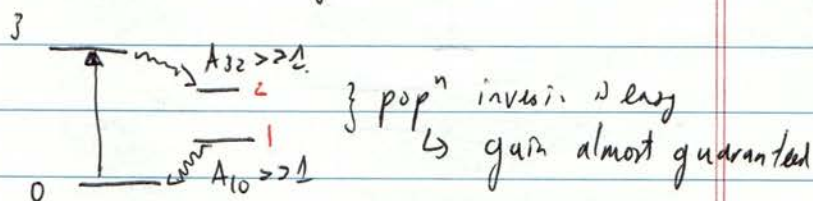 3
A₃₂ >> 1
2
} popⁿ inversⁿ is easy
1
↳ gain almost guaranteed
A₁₀ >> 1
0